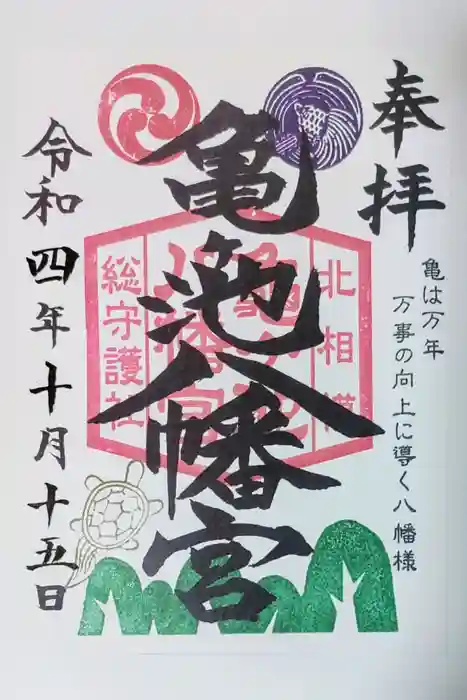 奉拝
亀は万年
万事の向上に導く八幡様
亀ヶ池八幡宮
北相模
総守護社
令和四年十月十五日